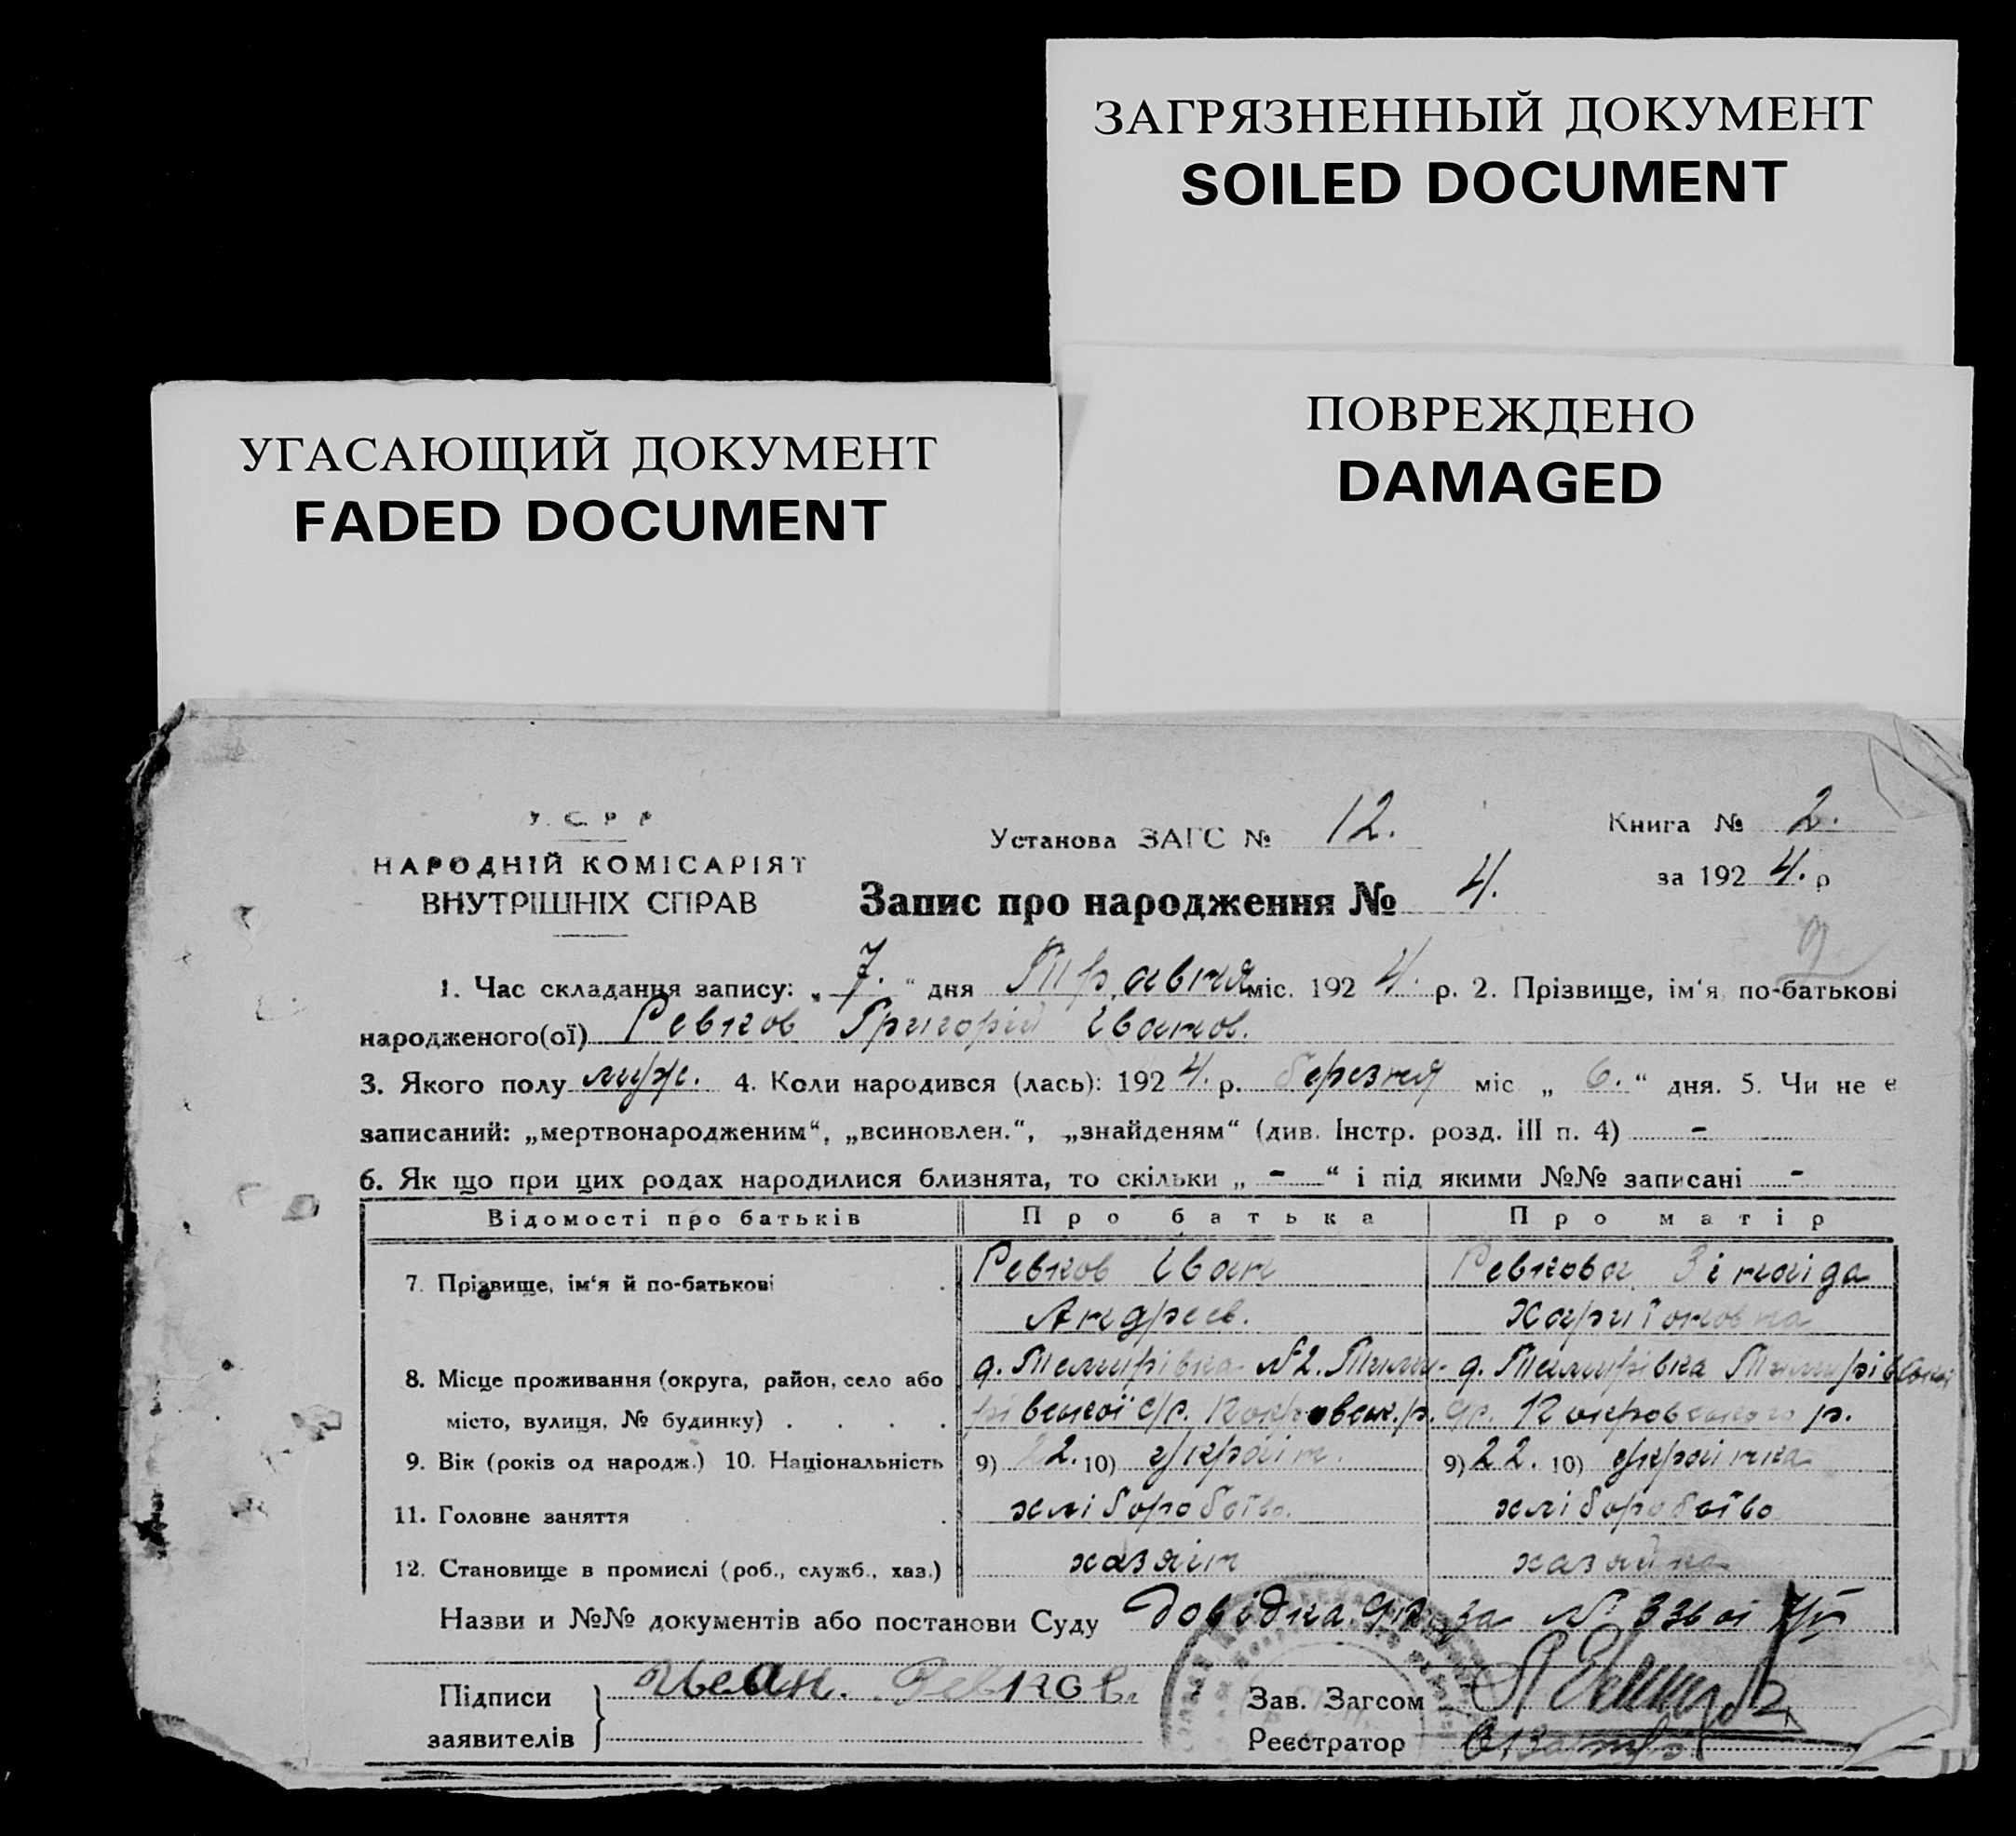 ЗАГРЯЗНЕННЫЙ ДОКУМЕНТ
SOILED DOCUMENT
ПОВРЕЖДЕНО
DAMAGED
УГАСАЮЩИЙ ДОКУМЕНТ
FADED DOCUMENT
У. С. Р. Р.
НАРОДНІЙ КОМІСАРІЯТ
ВНУТРІШНІХ СПРАВ
Установа ЗАГС № 12.
Книга № 2.
за 1924. р
Запис про народження № 4.
1. Час складання запису: „7.“ дня Травня міс. 1924. р. 2. Прізвище, ім‘я, по-батькові
народженого(ої) Ревков Григорій Іванов.
3. Якого полу муж. 4. Коли народився (лась): 1924. р. березня міс „6.“ дня. 5. Чи не є
записаний: „мертвонародженим“, „всиновлен.“, „знайденям“ (див. Інстр. розд. III п. 4) -
6. Як що при цих родах народилися близнята, то скільки „-“ і під якими №№ записані -
Відомості про батьків Про батька Про матір
7. Прізвище, ім‘я й по-батькові Ревков Іван Ревкова Зінаіда
Андреев. Харитоновна
8. Місце проживання (округа, район, село або д. Темирівка №2. д. Темирівка
місто, вулиця, № будинку) . . . . рівської с/р. Покровськ. р. с/р. Покровського р.
9. Вік (років од народж.) 10. Національність 9) 22. 10) україн. 9) 22. 10) українка
11. Головне заняття хліборобство. хліборобство
12. Становище в промислі (роб., служб., хаз.) хазяін хазяйка
Назви и №№ документів або постанови Суду Довідка с/р за №
Підписи Иван. Ревков. Зав. Загсом
заявителів Реєстратор